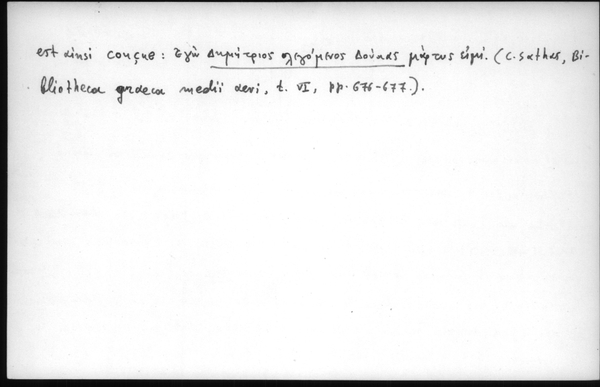 est ainsi conçue : Ἐγὼ Δημήτριος ὁ λεγόμενος Δούκας μάρτυς εἰμί. (C. Sathas, Bi-
bliotheca graeca medii aevi, t. VI, pp. 676-677.).